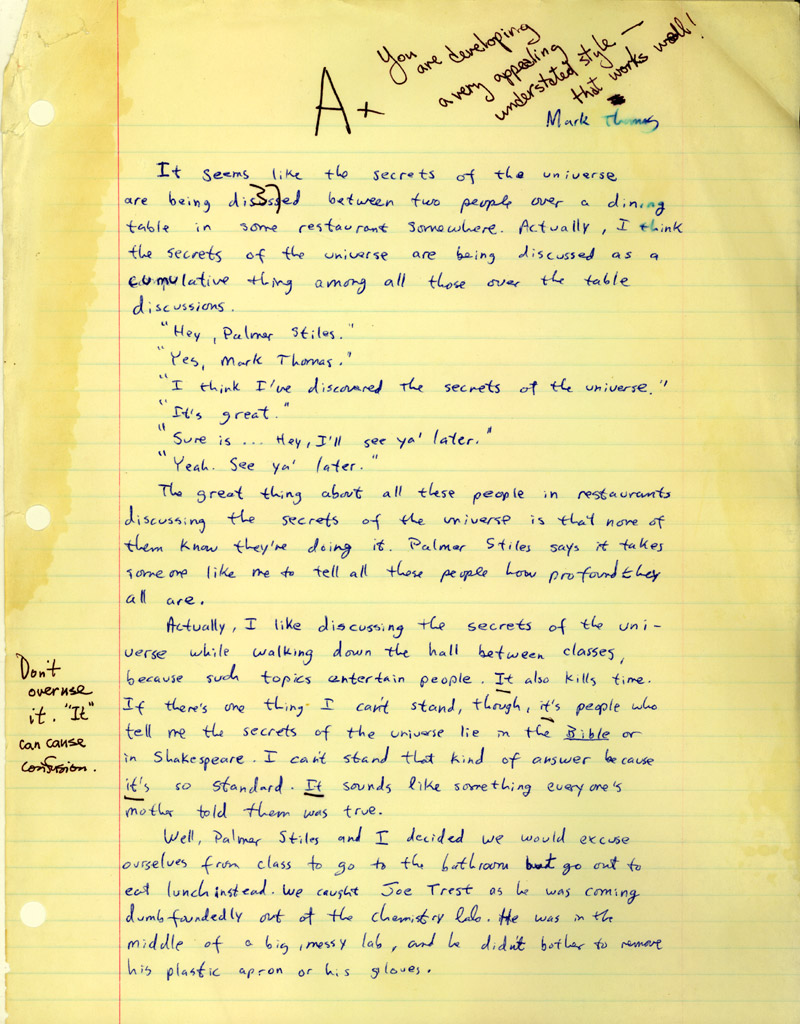 You are developing
a very appealing
understated style —
that works well!
A+
Mark Thomas
It seems like the secrets of the universe
are being disssed between two people over a dining
table in some restaurant somewhere. Actually, I think
the secrets of the universe are being discussed as a
cumulative thing among all those over the table
discussions.
"Hey, Palmer Stiles."
"Yes, Mark Thomas."
"I think I've discovered the secrets of the universe."
"It's great."
"Sure is ... Hey, I'll see ya' later."
"Yeah. See ya' later."
The great thing about all these people in restaurants
discussing the secrets of the universe is that none of
them know they're doing it. Palmer Stiles says it takes
someone like me to tell all these people how profound they
all are.
Actually, I like discussing the secrets of the uni-
verse while walking down the hall between classes,
because such topics entertain people. It also kills time.
If there's one thing I can't stand, though, it's people who
tell me the secrets of the universe lie in the Bible or
in Shakespeare. I can't stand that kind of answer because
it's so standard. It sounds like something everyone's
mother told them was true.
Don't
overuse
it. "It"
can cause
confusion.
Well, Palmer Stiles and I decided we would excuse
ourselves from class to go to the bathroom but go out to
eat lunch instead. We caught Joe Trest as he was coming
dumbfoundedly out of the chemistry lab. He was in the
middle of a big, messy lab, and he didn't bother to remove
his plastic apron or his gloves.